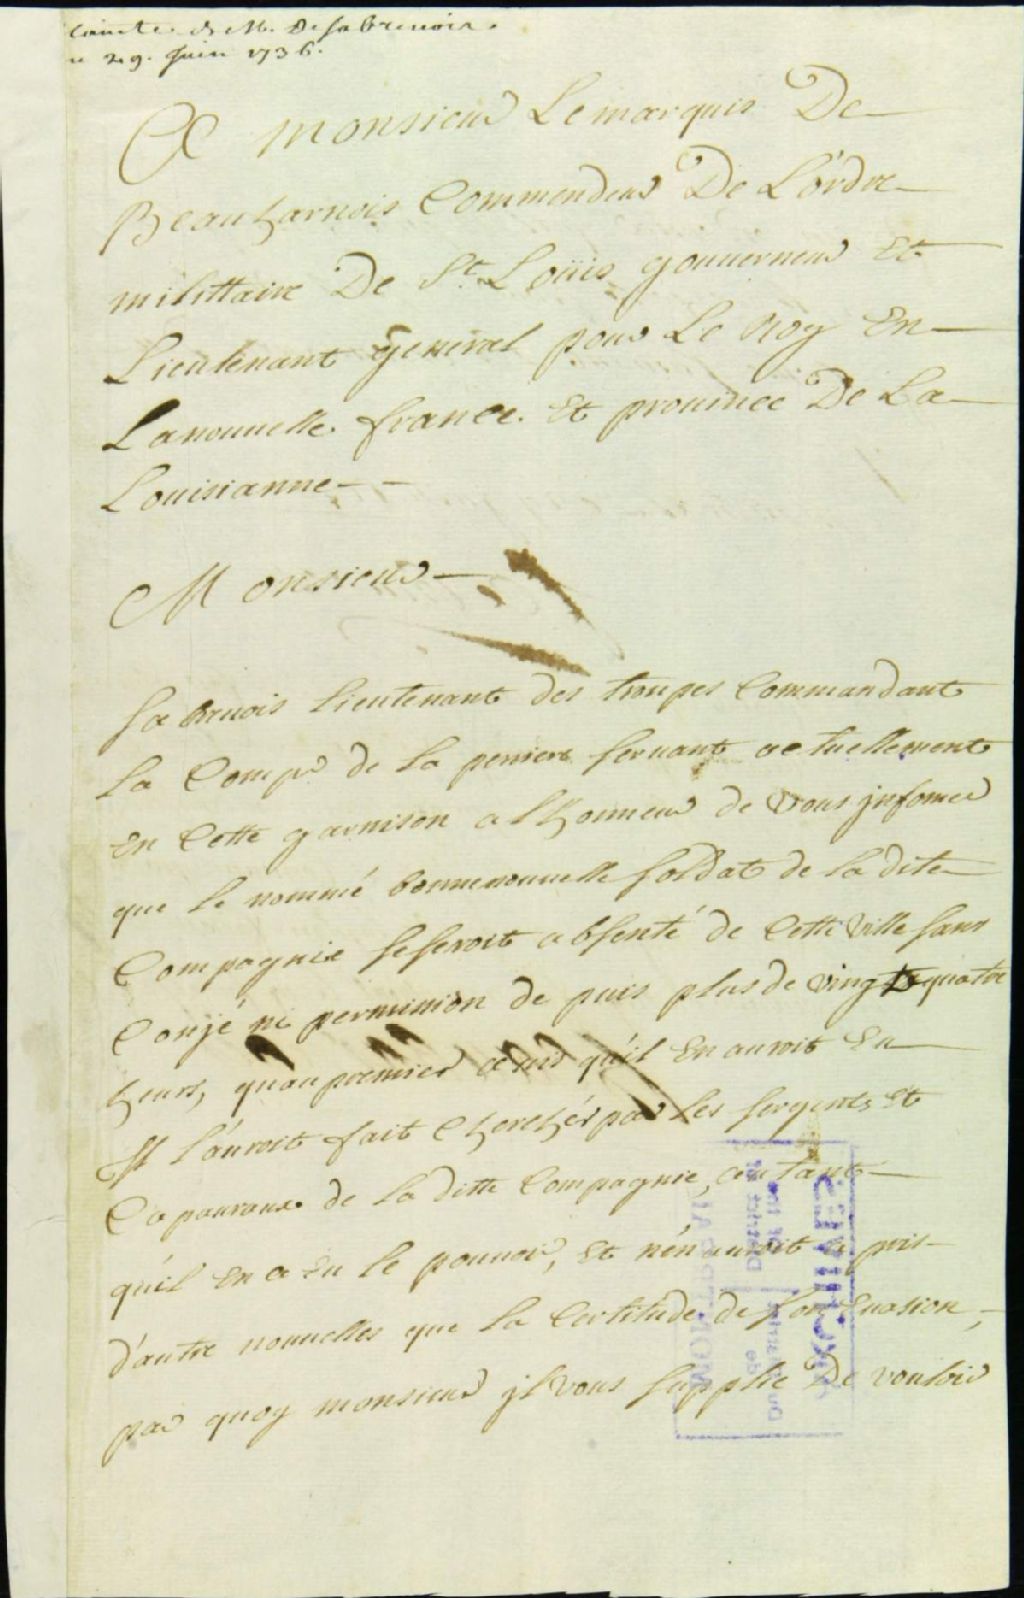 Plainte de M. De Sabrevois.
29. Juin 1736.
A monsieur Lemarquis De
Beauharnois Commendeur De L'ordre
milittaire De St. Loüis gouuerneur Et
Lieutenant general pour Le Roy En
Lanouuelle france. Et prouince De La
Louisianne
Monsieur
Sabreuois Lieutenant des troupes Commandant
La Compe de La seruant actuellement
En Cette garnison a lhonneur de Vous jnformer
que le nommé bonnenouuelle soldat de la dite
Compagnie seseroit absenté de Cette Ville sans
Conjé ni permission de puis plus de vingt quatre
heurs, quau premier auis qu'il En auroit Eu
Il l'auroit fait Cherchér par Les sergents Et
Caporaux de La ditte Compagnie, autant
qu'il En a Eu le pouuoir, Et n'en auroit apris
d'autre nouuelles que La Certitude de son Euasion,
par quoy monsieur jl Vous supplie De vouloir
ARCHIVES
MONTREAL